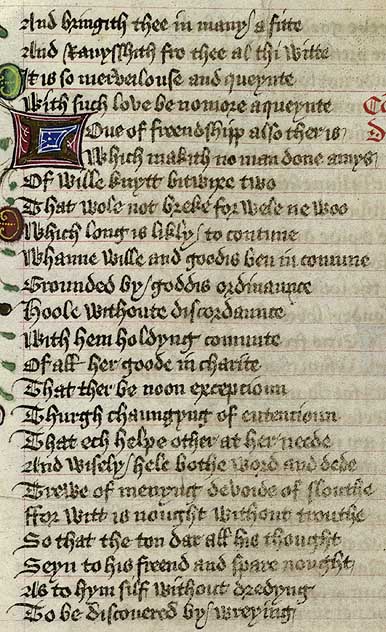 And bringith thee in many a fitte
And Ravysshith fro thee al thi witte
It is so merveilouse and queynte
With such love be no more aqueynte
Love of freendshipp also ther is
Which makith no man done amys
Of wille knytt bitwixe two
That wole not breke for wele ne woo
Which long is likly / to contune
Whanne wille and goodis ben in comune
Grounded by / goddis ordinaunce
Hoole withoute discordaunce
With hem holdyng comunte
Of all her goode in charite
That ther be noon excepcioun
Thurgh chaungyng of entencioun
That ech helpe other at her neede
And wisely / hele bothe word and dede
Trewe of menyng devoide of slouthe
ffor witt is nought without trouthe
So that the ton dar all his thought
Seyn to his freend and spare nought
As to hym silf without dredyng
To be discovered by / wreying